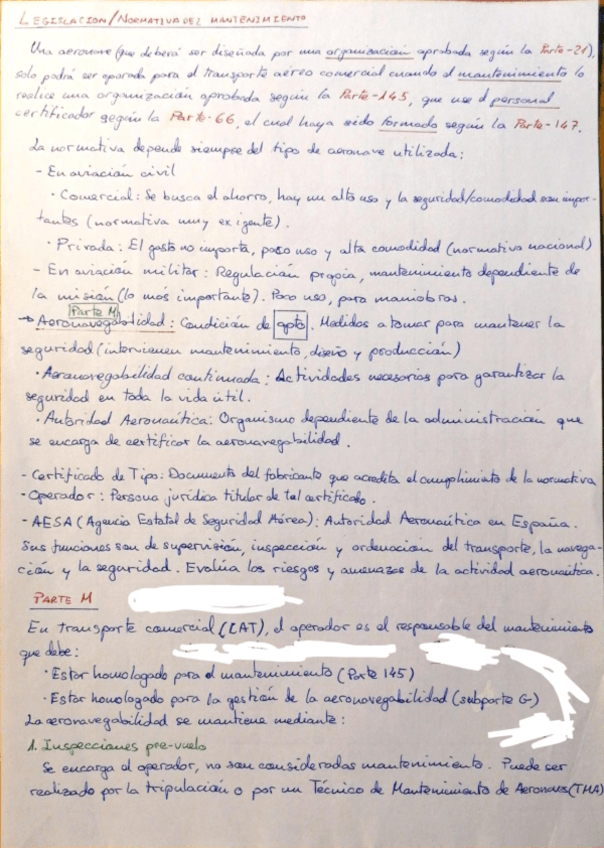 LEGISLACION/NORMATIVA DEL MANTENIMIENTO
Una aeronave (que deberá ser diseñada por una organización aprobada según la Parte-21),
solo podrá ser operada para el transporte aéreo comercial cuando el mantenimiento lo
realice una organización aprobada según la Parte-145, que use el personal
certificador según la Parte-66, el cual haya sido formado según la Parte-147.
La normativa depende siempre del tipo de aeronave utilizada:
- En aviación civil
· Comercial: Se busca el ahorro, hay un alto uso y la seguridad/comodidad son impor-
tantes (normativa muy exigente).
· Privada: El gasto no importa, poco uso y alta comodidad (normativa nacional)
- En aviación militar: Regulación propia, mantenimiento dependiente de
la misión (lo más importante). Poco uso, para maniobras.
Parte M
→ Aeronavegabilidad: Condición de apto. Medidas a tomar para mantener la
seguridad (intervienen mantenimiento, diseño y producción)
· Aeronavegabilidad continuada: Actividades necesarias para garantizar la
seguridad en toda la vida útil.
· Autoridad Aeronaútica: Organismo dependiente de la administración que
se encarga de certificar la aeronavegabilidad.
- Certificado de Tipo: Documento del fabricante que acredita el cumplimiento de la normativa
- Operador: Persona jurídica titular de tal certificado.
- AESA (Agencia Estatal de Seguridad Aérea): Autoridad Aeronaútica en España.
Sus funciones son de supervisión, inspección y ordenación del transporte, la navega-
ción y la seguridad. Evalúa los riesgos y amenazas de la actividad aeronaútica.
PARTE M
En transporte comercial (CAT), el operador es el responsable del mantenimiento
que debe:
· Estar homologado para el mantenimiento (Parte 145)
· Estar homologado para la gestión de la aeronavegabilidad (subparte G)
La aeronavegabilidad se mantiene mediante:
1. Inspecciones pre-vuelo
Se encarga el operador, no son consideradas mantenimiento. Puede ser
realizado por la tripulación o por un Técnico de Mantenimiento de Aeronaves (TMA)